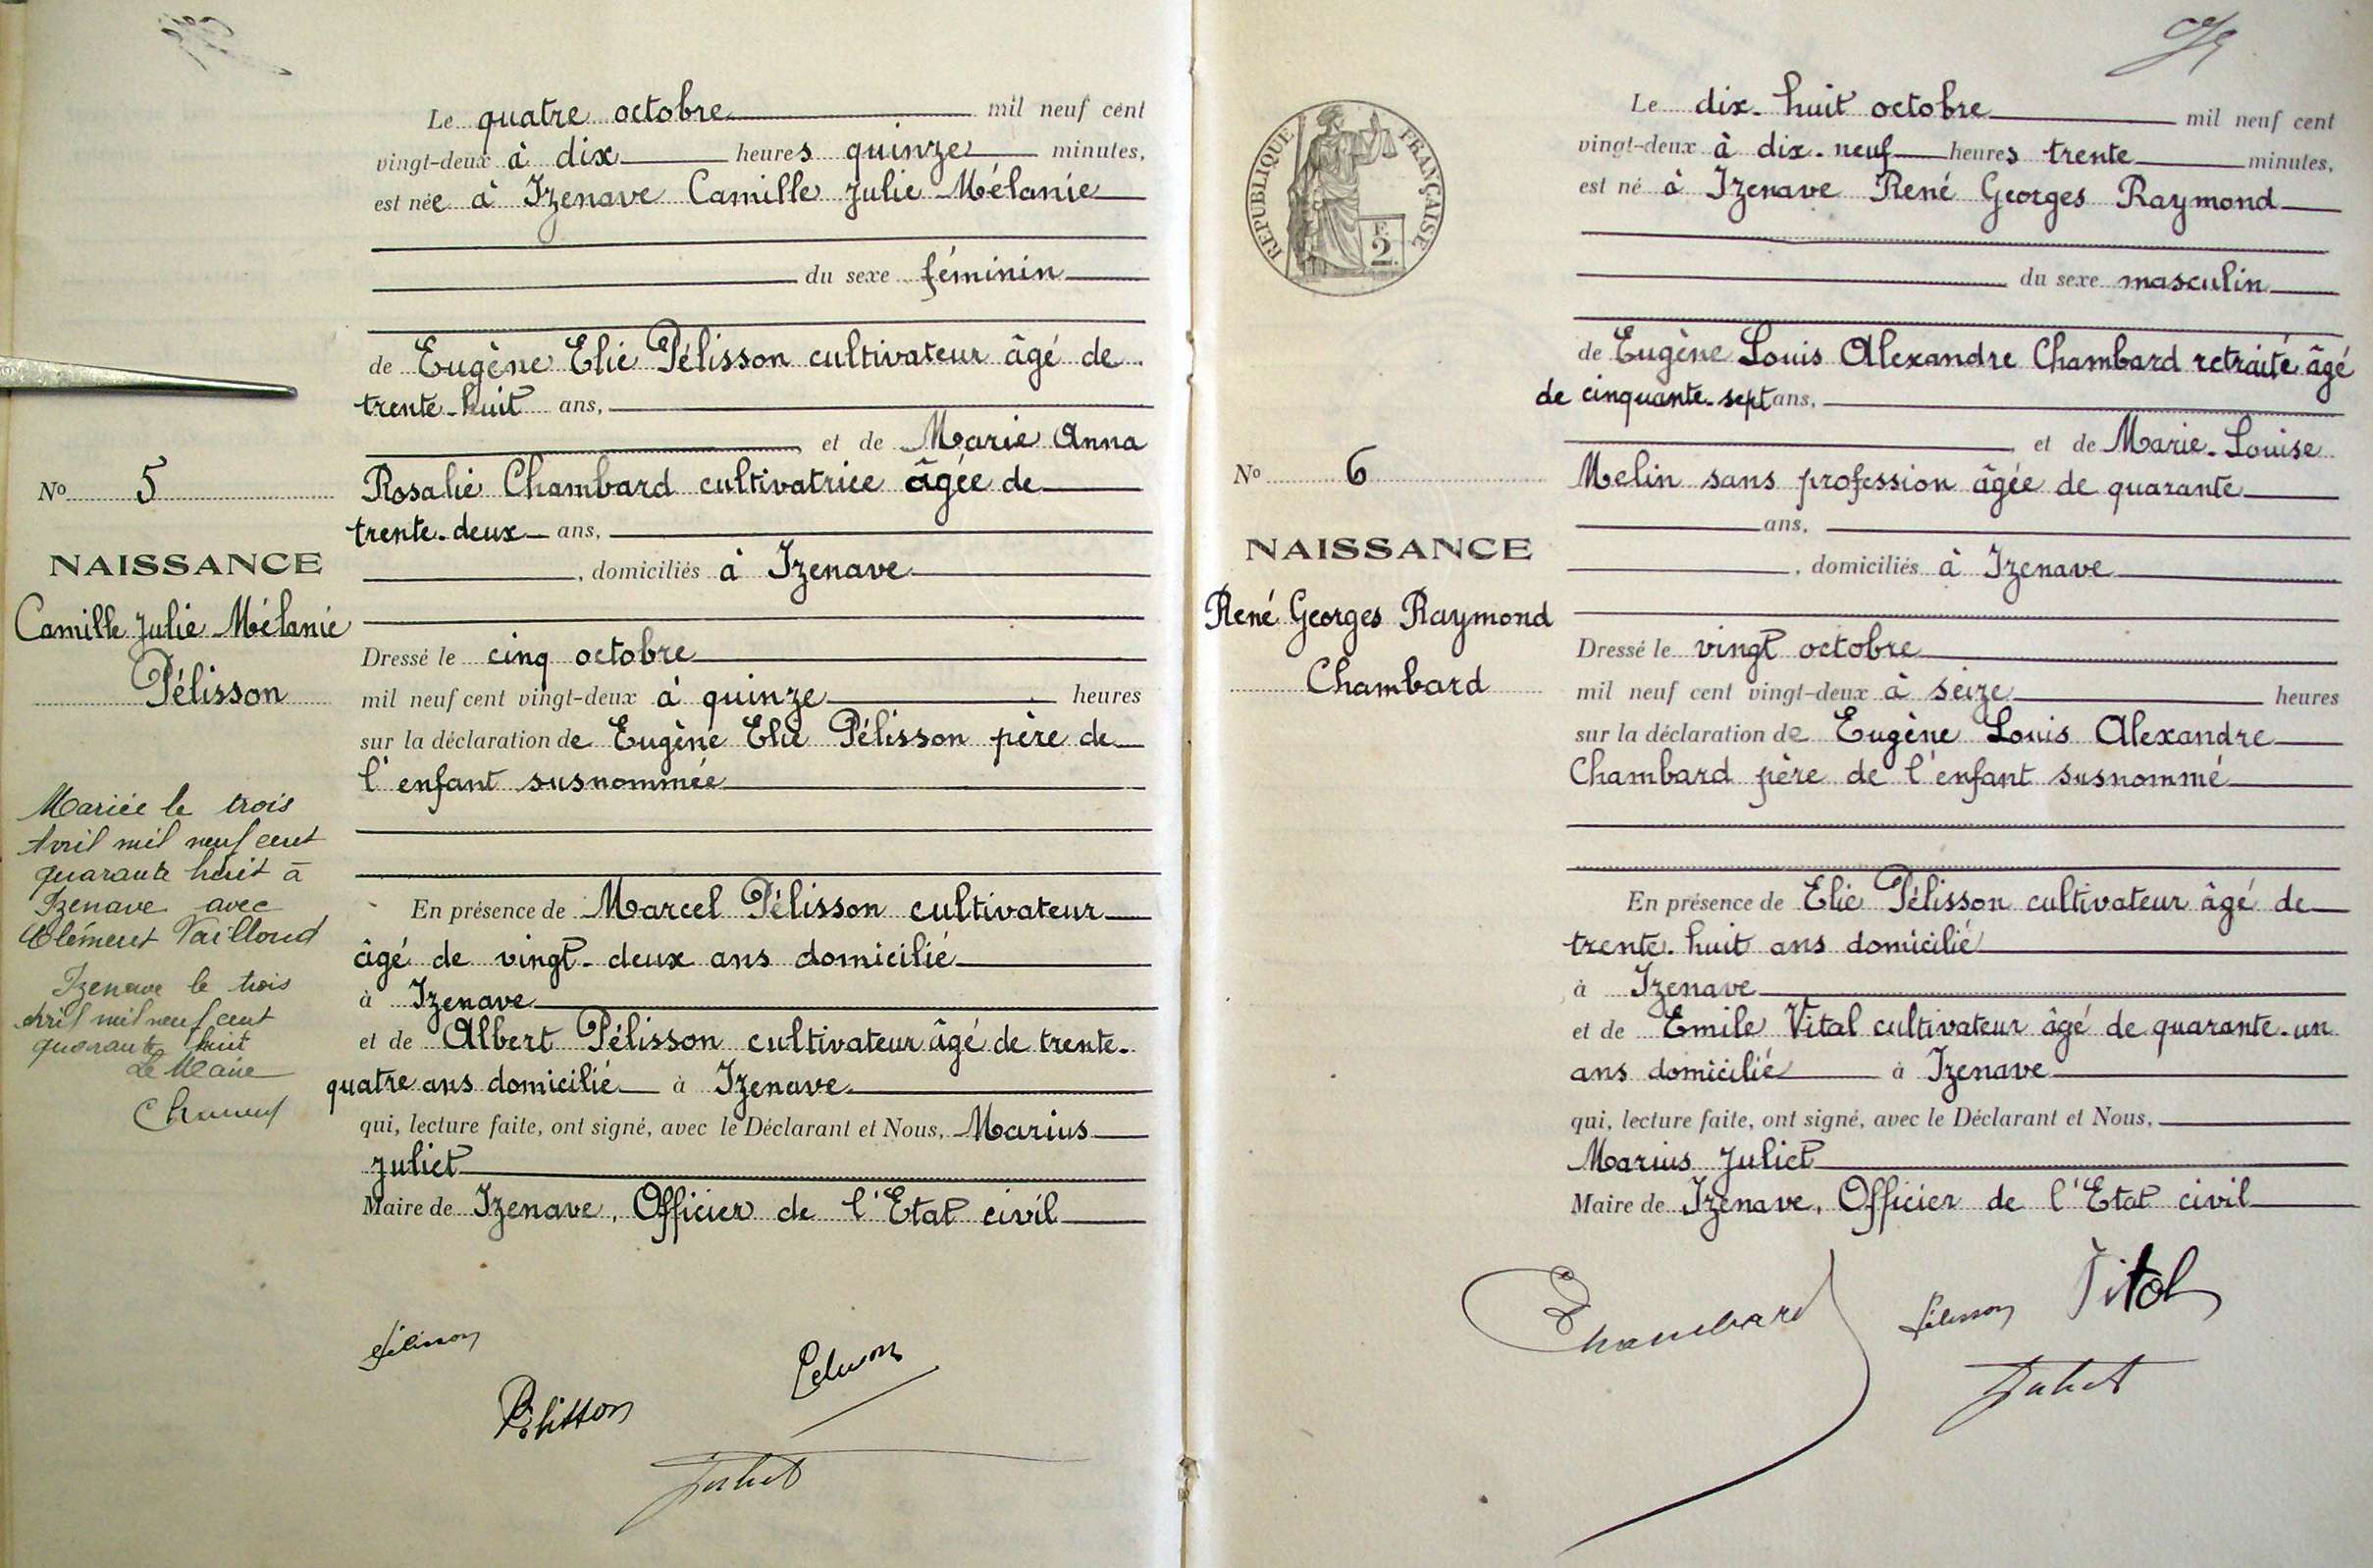 Le quatre octobre mil neuf cent
vingt-deux à dix heures quinze minutes,
est née à Izenave Camille Julie Mélanie
du sexe féminin
de Eugène Elie Pélisson cultivateur âgé de
trente-huit ans,
et de Marie Anna
Rosalie Chambard cultivatrice âgée de
trente-deux ans,
, domiciliés à Izenave
Dressé le cinq octobre
mil neuf cent vingt-deux à quinze heures
sur la déclaration de Eugène Elie Pélisson père de
l'enfant susnommée
En présence de Marcel Pélisson cultivateur
âgé de vingt-deux ans domicilié
à Izenave
et de Albert Pélisson cultivateur âgé de trente-
quatre ans domicilié à Izenave
qui, lecture faite, ont signé, avec le Déclarant et Nous, Marius
Juliet
Maire de Izenave, Officier de l'Etat civil
Pélisson
Pélisson
Pélisson
Juliet
No 5
NAISSANCE
Camille Julie Mélanie
Pélisson
Mariée le trois
Avril mil neuf cent
quarante huit à
Izenave avec
Clément Vailloud
Izenave le trois
avril mil neuf cent
quarante huit
Le Maire
Le dix-huit octobre mil neuf cent
vingt-deux à dix-neuf heures trente minutes,
est né à Izenave René Georges Raymond
du sexe masculin
de Eugène Louis Alexandre Chambard retraité âgé
de cinquante-sept ans,
et de Marie-Louise
Melin sans profession âgée de quarante
ans,
, domiciliés à Izenave
Dressé le vingt octobre
mil neuf cent vingt-deux à seize heures
sur la déclaration de Eugène Louis Alexandre
Chambard père de l'enfant susnommé
En présence de Elie Pélisson cultivateur âgé de
trente-huit ans domicilié
à Izenave
et de Emile Vital cultivateur âgé de quarante-un
ans domicilié à Izenave
qui, lecture faite, ont signé, avec le Déclarant et Nous,
Marius Juliet
Maire de Izenave, Officier de l'Etat civil
Chambard
Pélisson
Vital
Juliet
RÉPUBLIQUE FRANÇAISE
F.
2
No 6
NAISSANCE
René Georges Raymond
Chambard